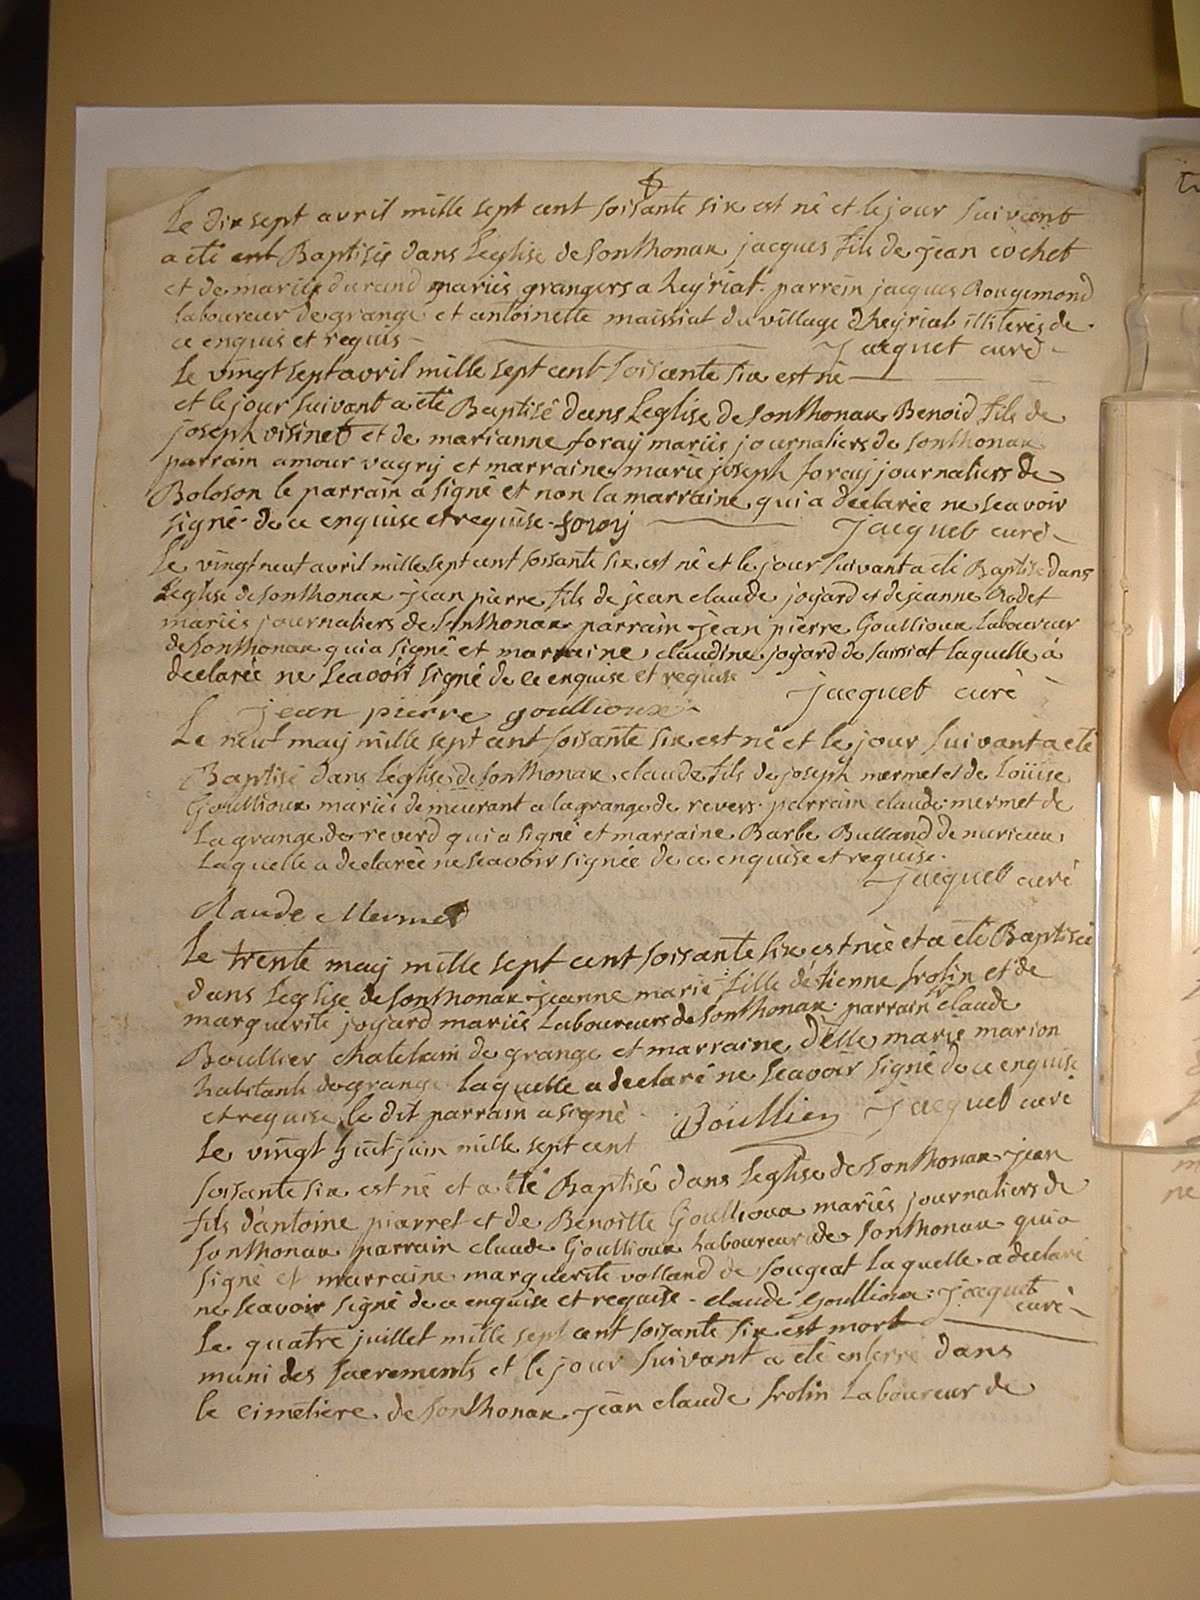 Le dix sept avril mille sept cent soisante six est né et le jour suivant
a eté ent Baptisé dans Leglise de Sonthonax jacques fils de jean cochet
et de marie durand mariés grangers a heÿriat. parrein jacques Rougemond
laboureur de grange et antoinette maissiat du village d'heÿriat illiterés de
ce enquis et requis - Jacquet curé -
Le vingt sept avril mille sept cent soisante six est né
et le jour suivant a eté Baptisé dans Leglise de Sonthonax Benoid fils de
joseph visinet et de marianne foray mariés journaliers de Sonthonax
parrain amour vugrÿ et marraine marie joseph foray journaliers de
Boloson le parrain a signé et non la marraine qui a declarée ne scavoir
signé de ce enquise et requise - Jacquet curé -
Le vingt neuf avril mille sept cent soisante six est né et le jour suivant a eté Baptisé dans
Leglise de Sonthonax jean pierre fils de jean claude joyard et de jeanne Rodet
mariés journaliers de Sonthonax parrain jean pierre Goullioux Laboureur
de Sonthonax qui a signé et marraine claudine joyard de laquelle á
declarée ne scavoir signé de ce enquise et requise jacquet curé
jean pierre goullioux -
Le neuf maÿ mille sept cent soisante six est né et le jour suivant a eté
Baptisé dans Leglise de Sonthonax claude fils de joseph mermet et de Loüise
Goullioux mariés demeurant a la grange de revers. parrain claude mermet de
La grange de reverd qui a signé et marraine Barbe Bulland de nurieux
Laquelle a declarée ne scavoir signée de ce enquise et requise.
Jacquet curé
claude Mermet
Le trente maÿ mille sept cent soisante six est née et a eté Baptisée
dans Leglise de Sonthonax jeanne marie fille detienne frolin et de
marguerite joyard mariés Laboureurs de Sonthonax. parrain claude
Boullier chatelain de grange et marraine d'elle marie marion
habitante de grange laquelle a declaré ne scavoir signé de ce enquise
et requise le dit parrain a signé Boullier Jacquet curé
Le vingt huit juin mille sept cent
soisante six est né et a été Baptisé dans leglise de Sonthonax jean
fils d'antoine piarret et de Benoitte Goullioux mariés journaliers de
Sonthonax parrain claude Goullioux Laboureur de Sonthonax qui a
signé et marraine marguerite volland de Sougeat Laquelle a declaré
ne scavoir signé de ce enquise et requise - claude goullioux jacquet
curé -
Le quatre juillet mille sept cent soisante six est mort
muni des sacrements et le jour suivant a eté enterré dans
le cimetiere de Sonthonax jean claude frolin Laboureur de